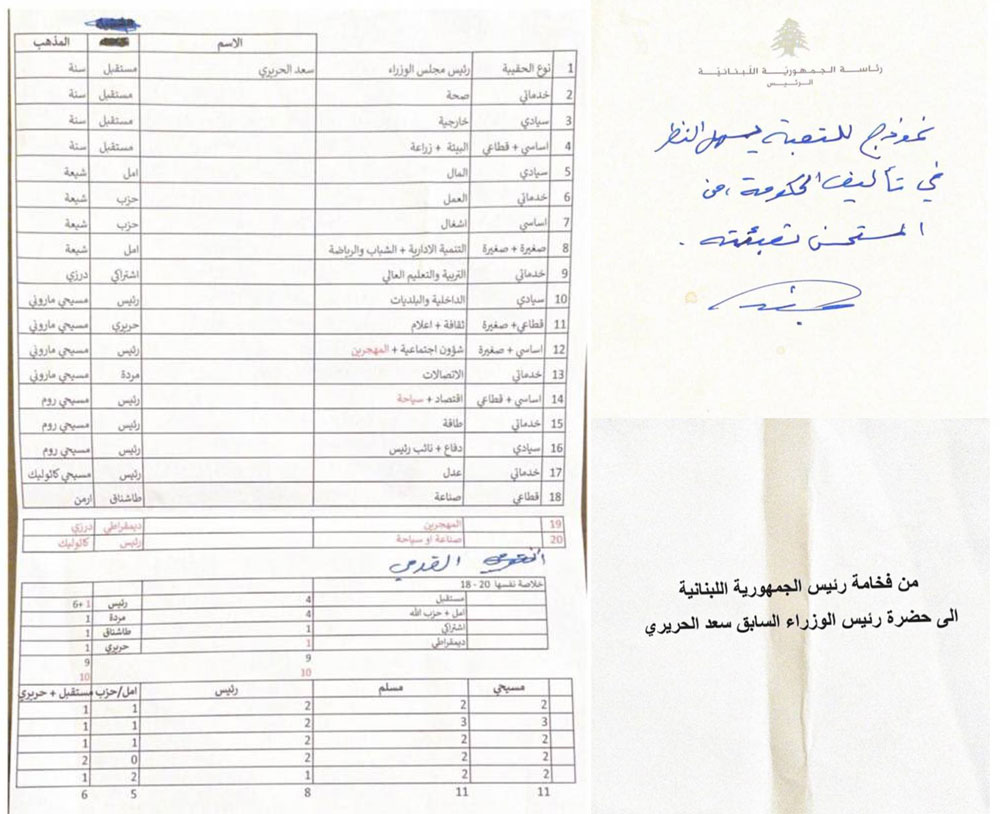 المذهب الاسم
1 نوع الحقيبة رئيس مجلس الوزراء سعد الحريري مستقبل سنة
2 خدماتي صحة مستقبل سنة
3 سيادي خارجية مستقبل سنة
4 اساسي + قطاعي البيئة + زراعة مستقبل سنة
5 سيادي المال امل شيعة
6 خدماتي العمل حزب شيعة
7 اساسي اشغال حزب شيعة
8 صغيرة + صغيرة التنمية الادارية + الشباب والرياضة امل شيعة
9 خدماتي التربية والتعليم العالي اشتراكي درزي
10 سيادي الداخلية والبلديات رئيس مسيحي ماروني
11 قطاعي+ صغيرة ثقافة + اعلام حريري مسيحي ماروني
12 اساسي + صغيرة شؤون اجتماعية + المهجرين رئيس مسيحي ماروني
13 خدماتي الاتصالات مردة مسيحي ماروني
14 اساسي + قطاعي اقتصاد + سياحة رئيس مسيحي روم
15 خدماتي طاقة رئيس مسيحي روم
16 سيادي دفاع + نائب رئيس رئيس مسيحي روم
17 خدماتي عدل رئيس مسيحي كاثوليك
18 قطاعي صناعة طاشناق ارمن
19 المهجرين ديمقراطي درزي
20 صناعة او سياحة رئيس كاثوليك
القدمي
خلاصة نفسها 20 - 18
مستقبل 4 رئيس 1 +6
امل + حزب الله 4 مردة 1
اشتراكي 1 طاشناق 1
ديمقراطي 1 حريري 1
9 9
10 10
مسيحي مسلم رئيس امل/حزب مستقبل + حريري
2 2 2 1 1
3 3 2 1 1
2 2 2 1 1
2 2 2 0 2
2 2 1 2 1
11 11 8 5 6
رئاسة الجمهورية اللبنانية
الرئيس
نموذج للتعبئة يسهل النظر
في تأليف الحكومة، من
المستحسن تعبئته.
من فخامة رئيس الجمهورية اللبنانية
الى حضرة رئيس الوزراء السابق سعد الحريري